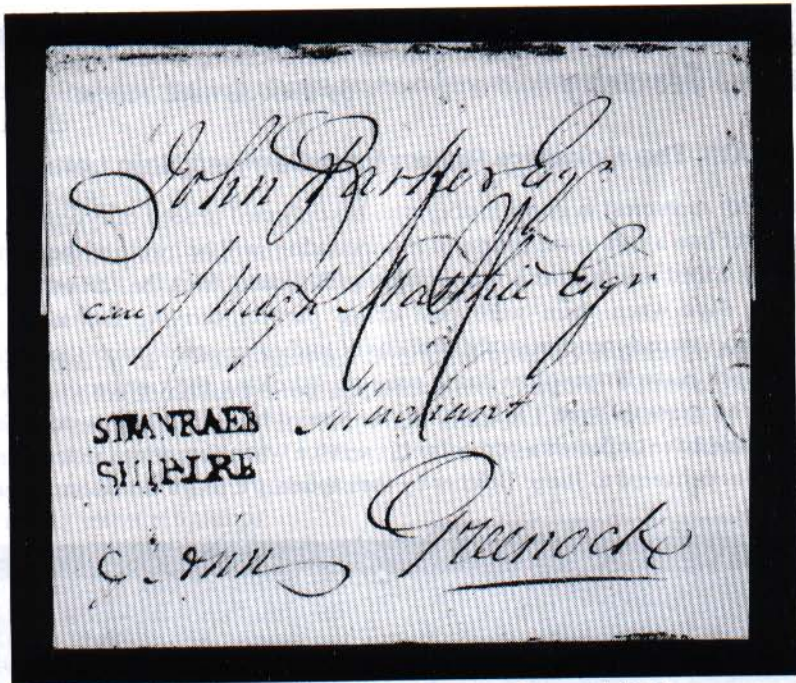 John Parker Esqr
care of Hugh Mathie Esqr
Merchant
STRANRAER
SHIP LRE
Greenock